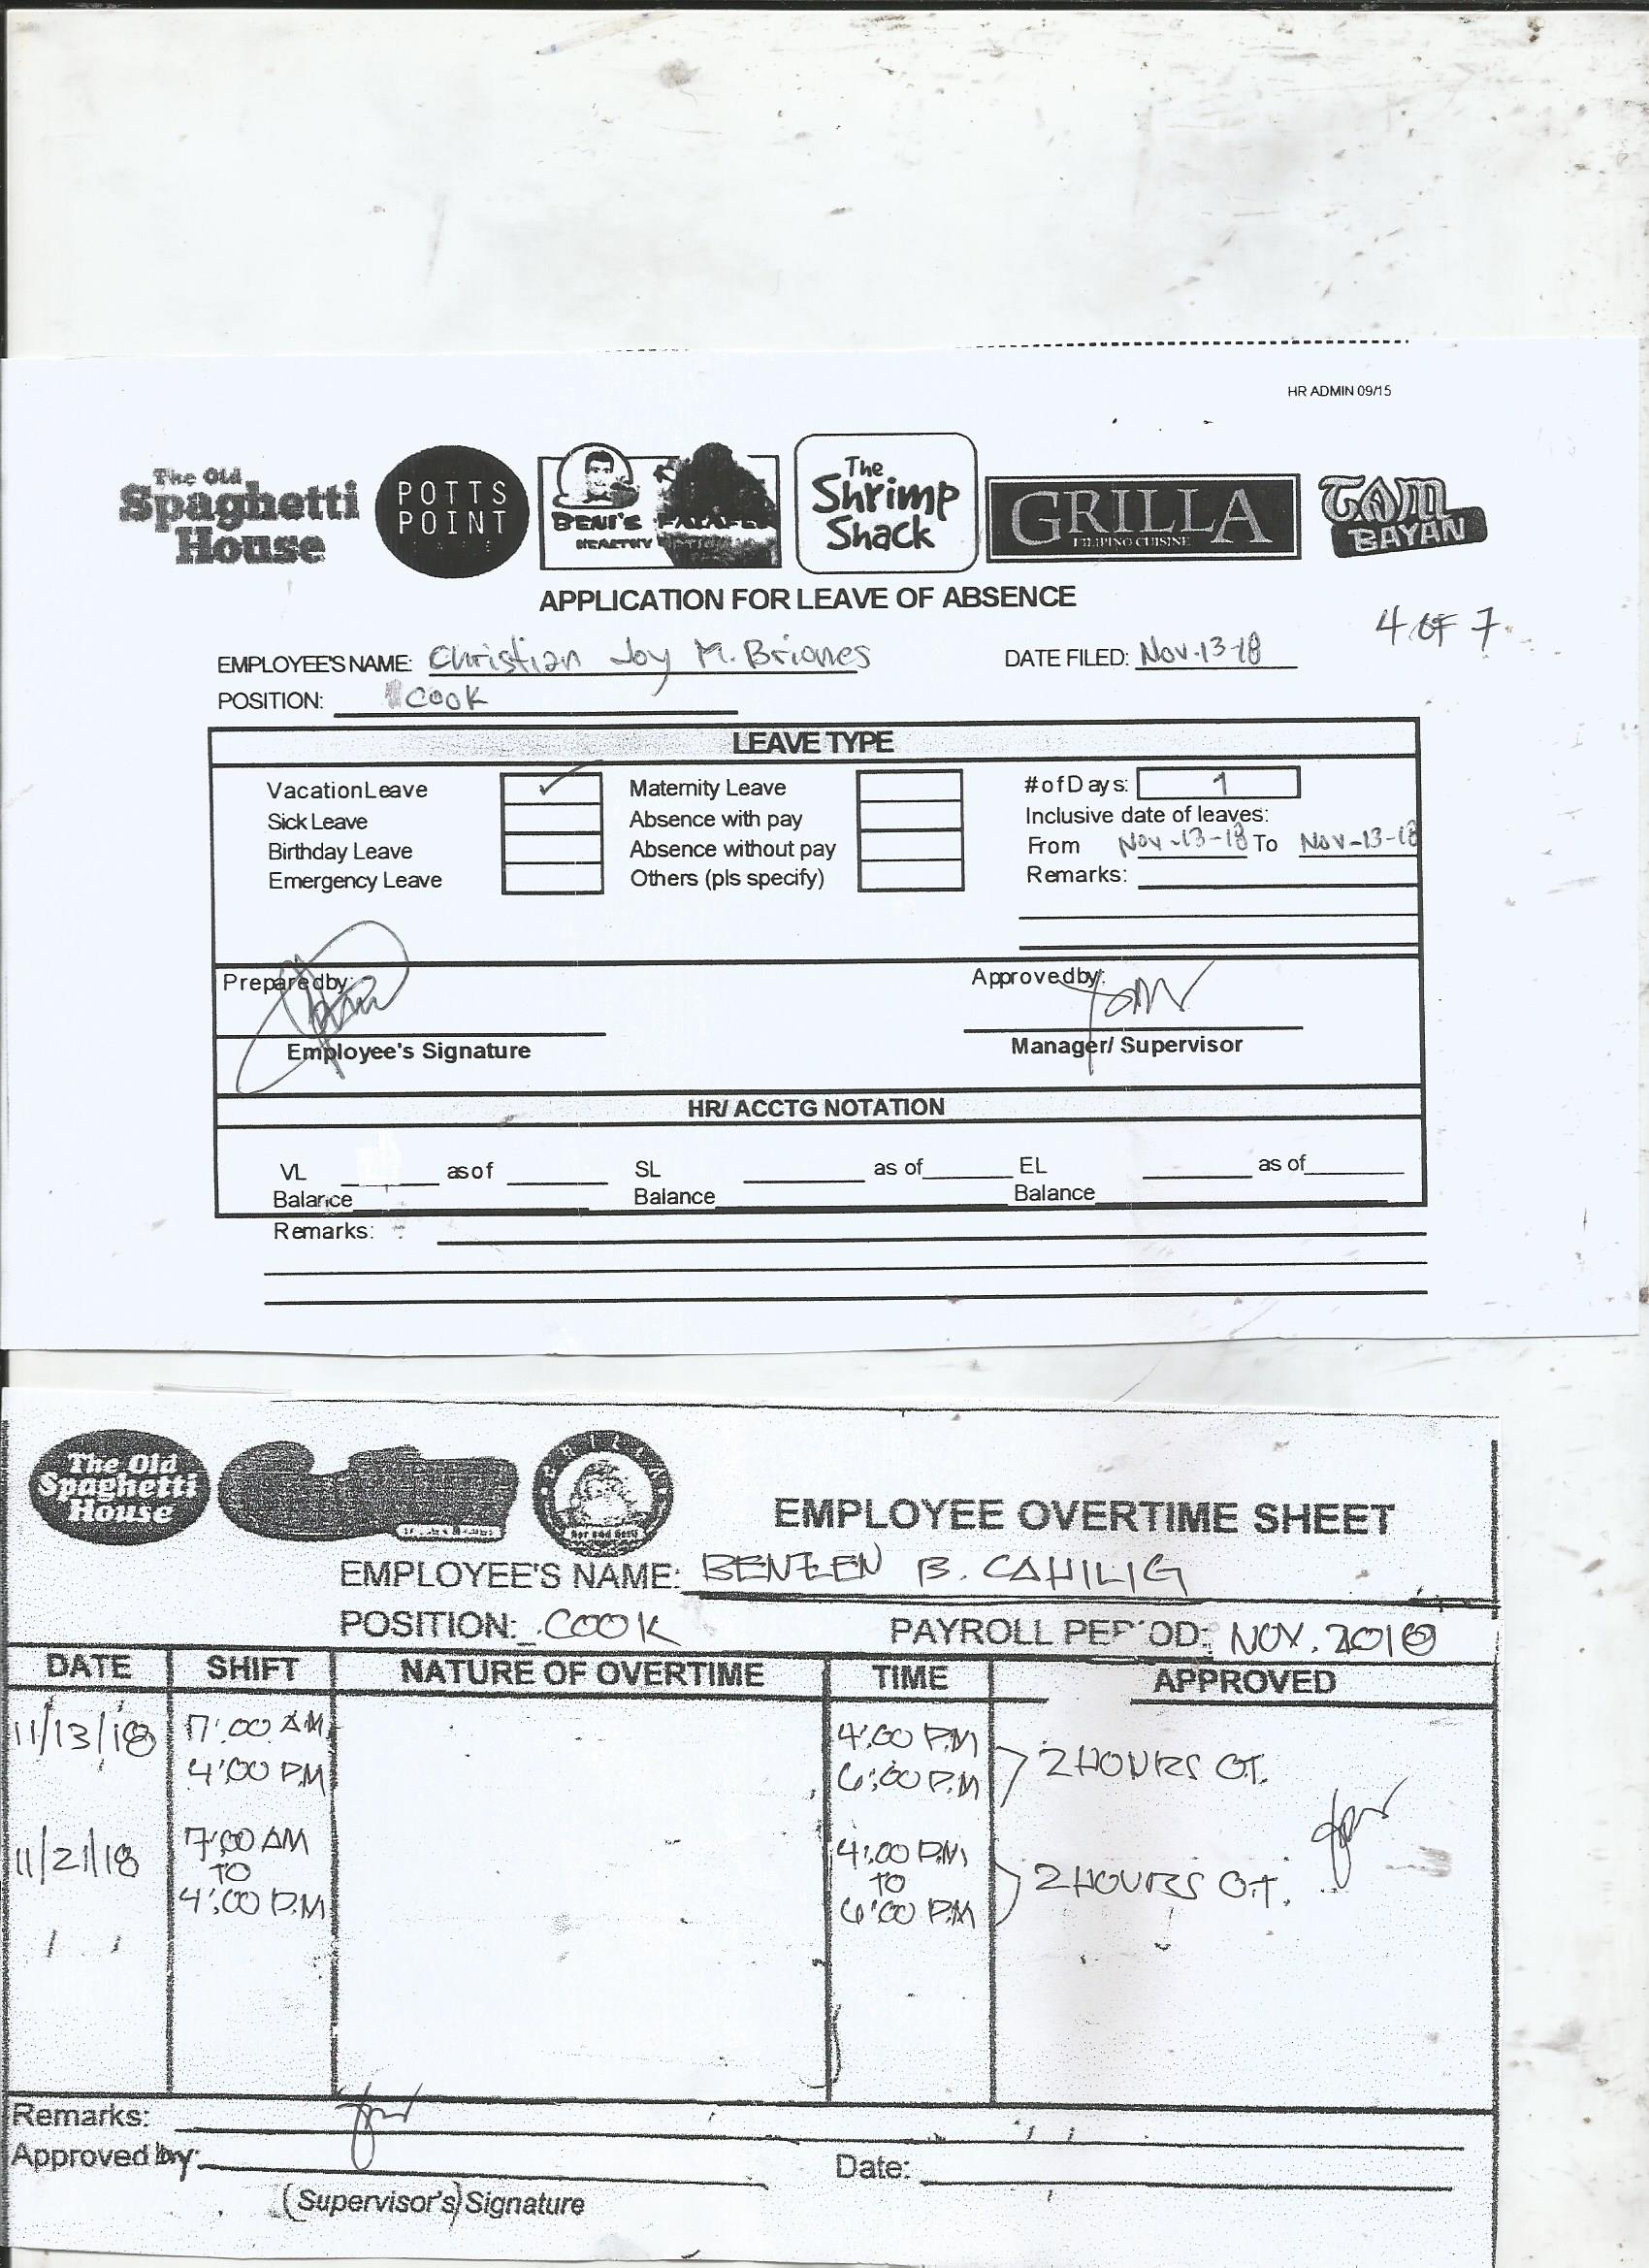 HR ADMIN 09/15
The Old
Spaghetti
House
POTTS
POINT
BENI'S FALAFEL
HEALTHY
The
Shrimp
Shack
GRILLA
FILIPINO CUISINE
TAM
BAYAN
APPLICATION FOR LEAVE OF ABSENCE
4 OF 7
EMPLOYEE'S NAME: Christian Joy M. Briones DATE FILED: Nov-13-18
POSITION: Cook
LEAVE TYPE
Vacation Leave ✓ Maternity Leave # of Days: 1
Sick Leave Absence with pay Inclusive date of leaves:
Birthday Leave Absence without pay From Nov-13-18 To Nov-13-18
Emergency Leave Others (pls specify) Remarks:
Prepared by: Approved by:
Employee's Signature Manager/ Supervisor
HR/ ACCTG NOTATION
VL as of SL as of EL as of
Balance Balance Balance
Remarks:
The Old
Spaghetti
House
EMPLOYEE OVERTIME SHEET
EMPLOYEE'S NAME: BENZEN B. CAHILIG
POSITION: COOK PAYROLL PERIOD: NOV. 2018
DATE SHIFT NATURE OF OVERTIME TIME APPROVED
11/13/18 7:00 AM 4:00 P.M 2 HOURS O.T.
4:00 PM 6:00 P.M
11/21/18 7:00 AM 4:00 P.M. 2 HOURS O.T.
TO TO
4:00 P.M 6:00 P.M
Remarks:
Approved by: Date:
(Supervisor's) Signature